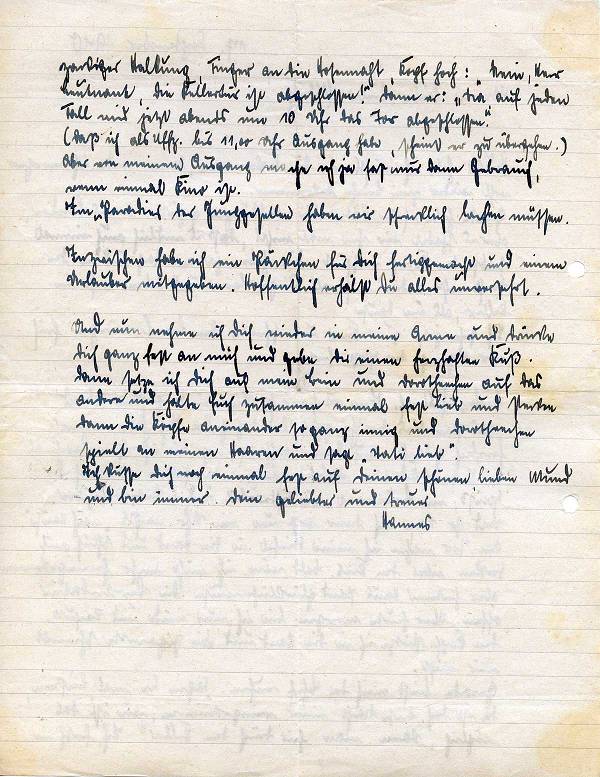 zackiger Haltung, Finger an die Hosennaht, Kopf hoch: "Nein, Herr
Leutnant, die Kellertür ist abgeschlossen!" Dann er: "Tja auf jeden
Fall wird jetzt abends um 10 Uhr das Tor abgeschlossen."
(Daß ich als Uffz. bis 11,00 Uhr Ausgang habe, scheint er zu übergehen.)
Aber von meinem Ausgang mache ich ja fast nur dann Gebrauch,
wenn einmal Kino ist.
Im "Paradies der Junggesellen haben wir schrecklich lachen müssen.
Inzwischen habe ich ein Päckchen für Dich fertiggemacht und einem
Urlauber mitgegeben. Hoffentlich erhälst Du alles unversehrt.
Und nun nehme ich Dich wieder in meine Arme und drücke
Dich ganz fest an mich und gebe Dir einen herzhaften Kuß.
Dann setze ich Dich auf mein Bein und Dorothechen auf das
andere und halte Euch zusammen einmal fest lieb und
dann die Köpfe aneinander so ganz innig und Dorothechen
spielt an meinen Haaren und sagt "Vati lieb".
Ich küsse Dich noch einmal fest auf Deinen schönen, lieben Mund
und bin immer Dein geliebter und treuer
Hannes